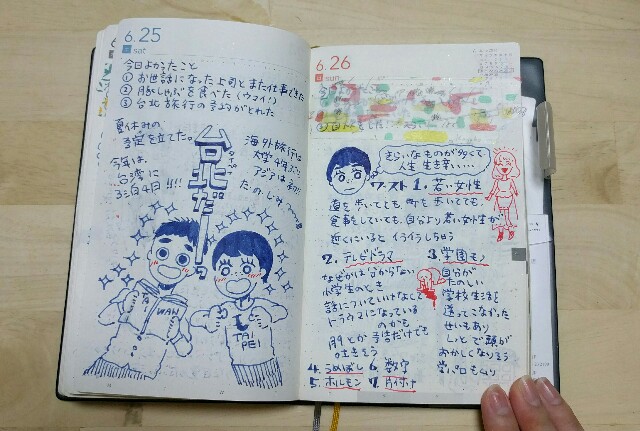 6.25
土 sat
今日よかったこと
① お世話になった上司とまた仕事できた
② 豚しゃぶを食べた(ウマイ!)
③ 台北旅行の予約がとれた
夏休みの
予定を立てた。
今年は、
台湾に
3泊4日!!!
台北だーっ
タイペイ
海外旅行は
大学4年ぶり
アジアは初!!
たのしみ〜
TAIWAN
TAIPEI
6.26
日 sun
きらいなものが多くて
人生生き辛い…
ワースト1. 若い女性
道を歩いてても、町を歩いてても、
食事をしていても、自分より若い女性が
近くにいるとイライラしちゃう
2. テレビドラマ
なぜかは分からない
小学生のとき
話についていけなくて
トラウマになっている
のかも
月9とか予告だけでも
吐きそう
3. 学園モノ
自分が
たのしい
学校生活を
送ってこなかった
せいもあり
しっとで頭が
おかしくなりそう
学パロもムリ
4. うめぼし
5. ホルモン
6. 数字
7. 片付け